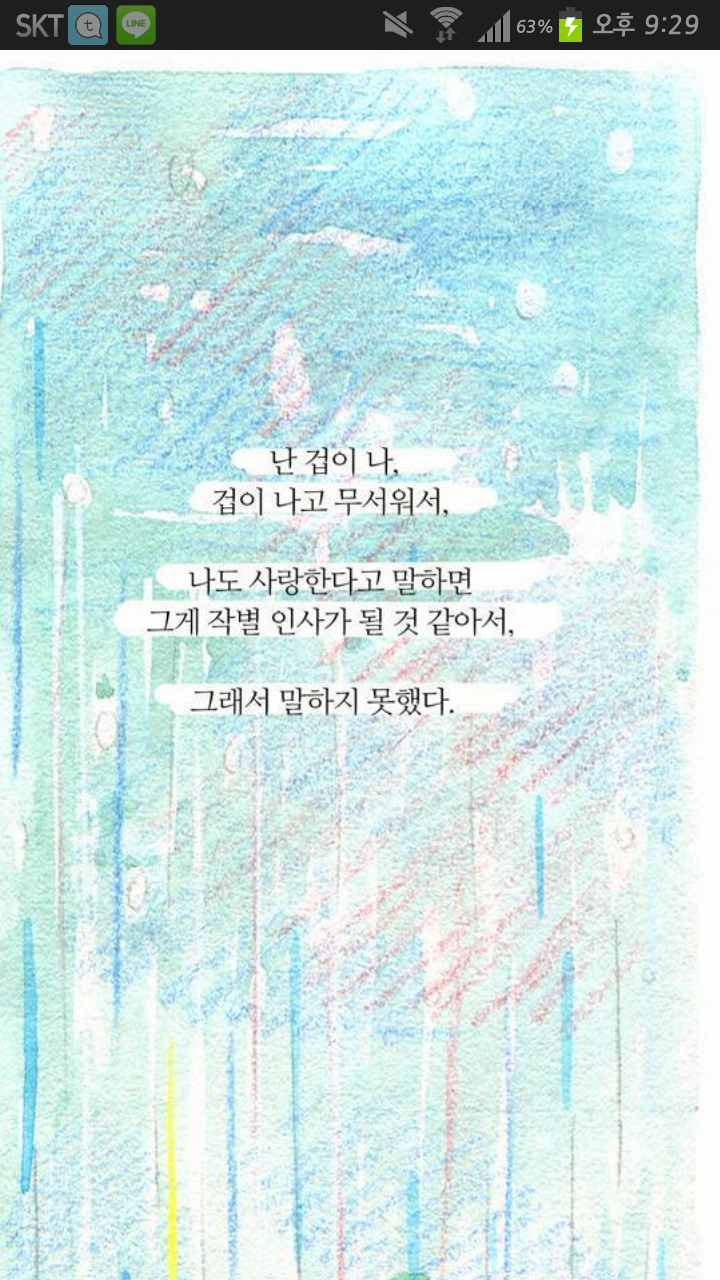 SKT LINE 63% 오후 9:29
난 겁이 나,
겁이 나고 무서워서,
나도 사랑한다고 말하면
그게 작별 인사가 될 것 같아서,
그래서 말하지 못했다.